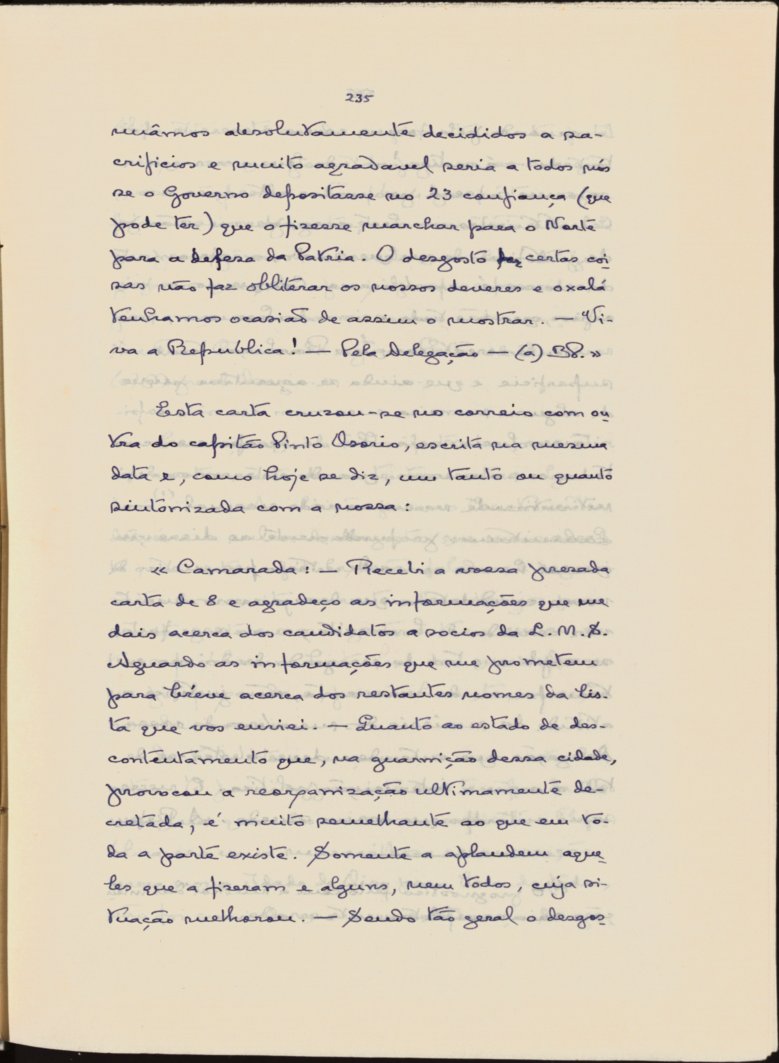 235
nuâmos absolutamente decididos a sa-
crificios e muito agradavel seria a todos nós
se o Governo depositasse no 23 confiança (que
pode ter) que o fizesse marchar para o Norte
para a defesa da Patria. O desgosto por certas coi-
sas não faz obliterar os nossos deveres e oxalá
tenhamos ocasião de assim o mostrar. — Vi-
va a Republica! — Pela Delegação — (a) BP. »
Esta carta cruzou-se no correio com ou-
tra do capitão Pinto Osorio, escrita na mesma
data e, como hoje se diz, um tanto ou quanto
sintonizada com a nossa:
« Camarada: — Recebi a vossa presada
carta de 8 e agradeço as informações que me
dais acerca dos candidatos a socios da L. M. S.
Aguardo as informações que me prometem
para bréve acerca dos restantes nomes da lis-
ta que vos enviei. — Quanto ao estado de des-
contentamento que, na guarnição dessa cidade,
provocou a reorganização ultimamente de-
cretada, é muito semelhante ao que em to-
da a parte existe. Somente a aplaudem aque-
les que a fizeram e alguns, nem todos, cuja si-
tuação melhorou. — Sendo tão geral o desgos-